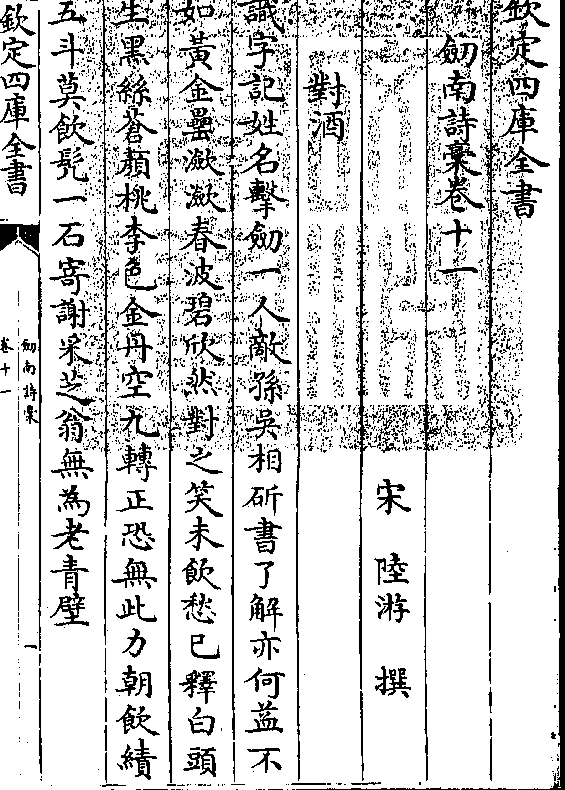 欽定四庫全書
劒南詩稾卷十一
宋 陸游 撰
對酒
識字記姓名擊劒一人敵孫吳相斫書了解亦何益不
如黃金罍瀲瀲春波碧欣然對之笑未飲愁已釋白頭
生黑絲蒼顏桃李色金丹空九轉正恐無此力朝飲續
五斗莫飲髠一石寄謝采芝翁無為老青壁
欽定四庫全書
劒南詩稾
卷十一
一